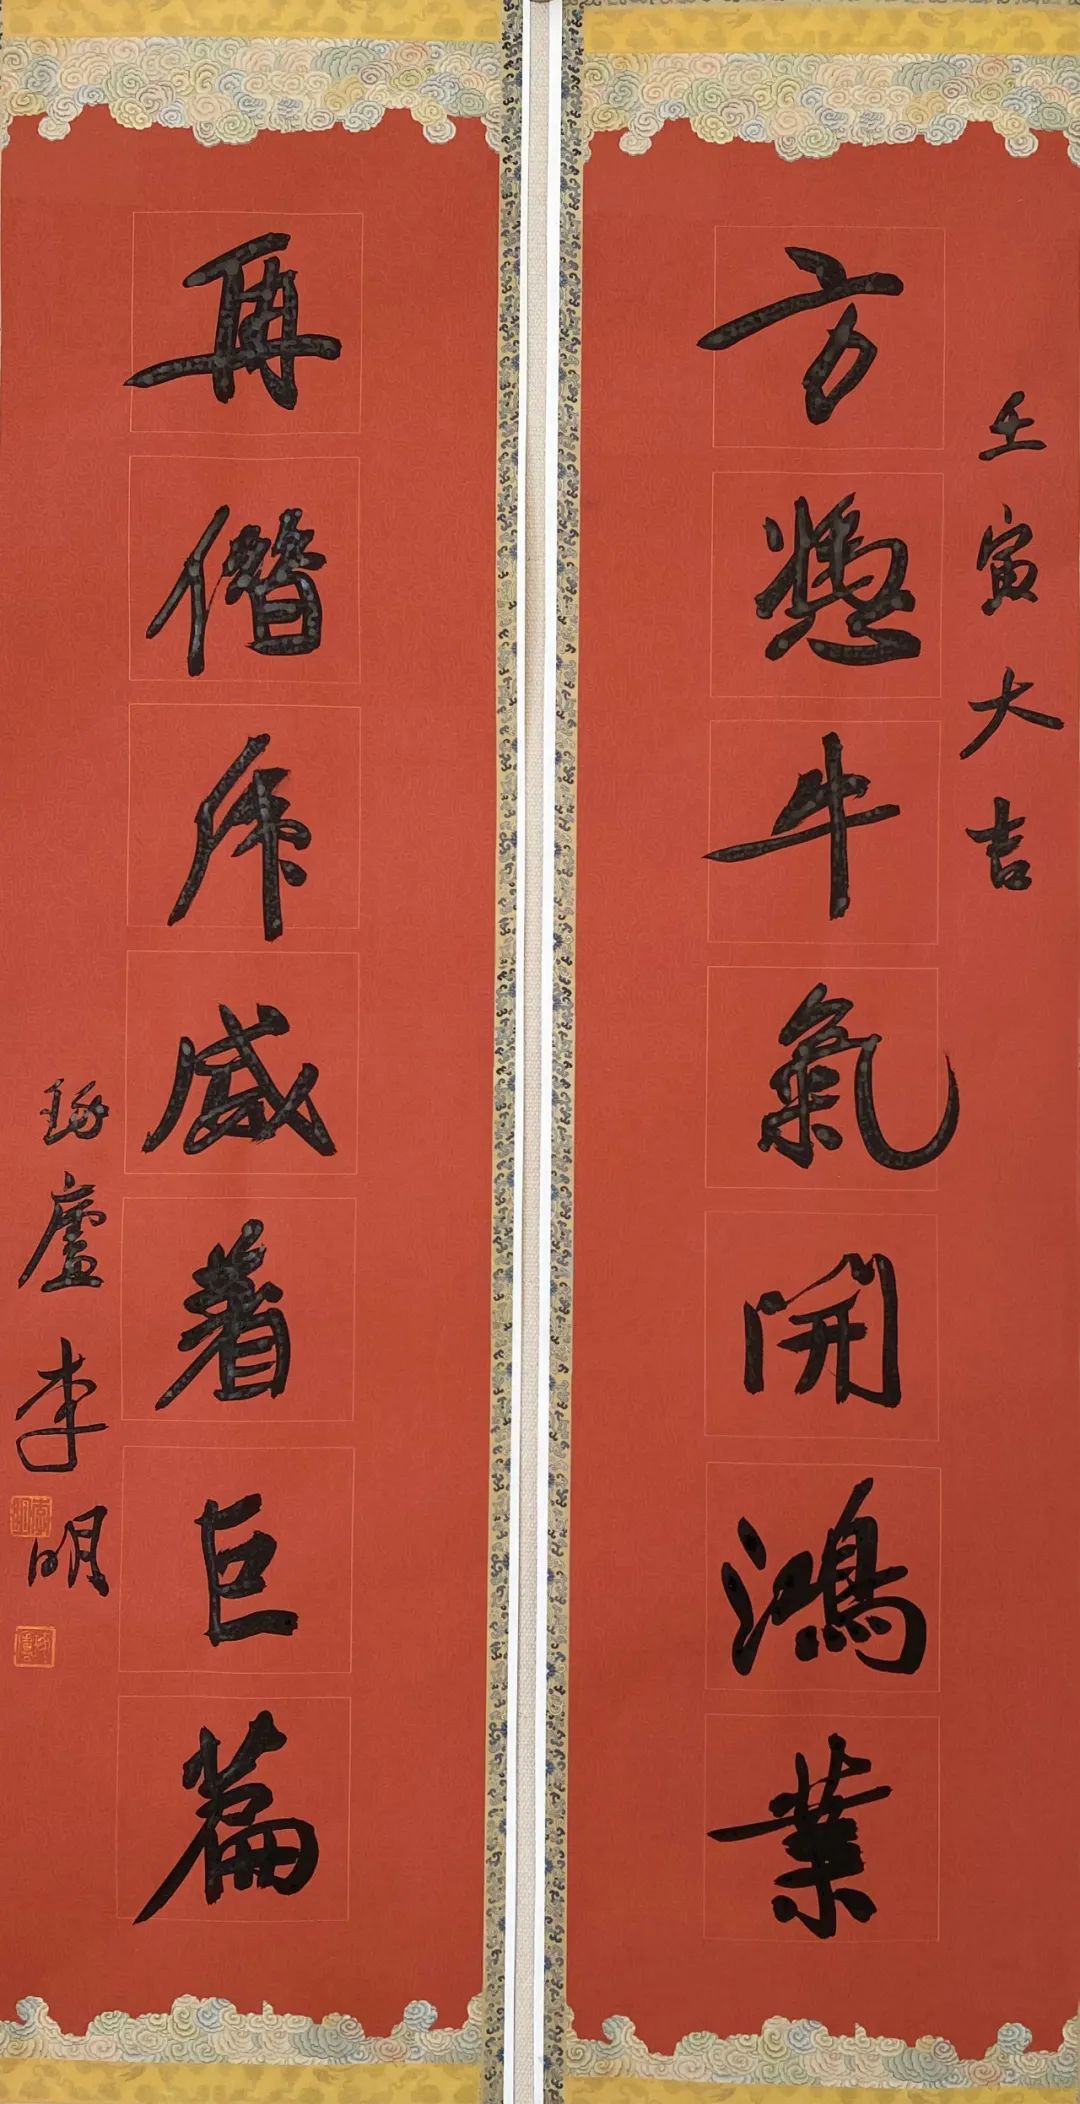 壬寅大吉
方憑牛氣開鴻業
再僭虎威著巨篇
琢廬李明